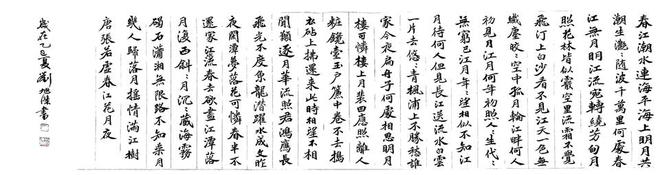 春江潮水連海平海上明月共
潮生灩々隨波千萬里何處春
江無月明江流宛轉繞芳甸月
照花林皆似霰空里流霜不覺
飛汀上白沙看不見江天一色無
纖塵皎々空中孤月輪江畔何人
初見月江月何年初照人々生代々
無窮已江月年々望相似不知江
月待何人但見長江送流水白雲
一片去悠々青楓浦上不勝愁誰
家今夜扁舟子何處相思明月
樓可憐樓上月裴回應照離人
粧鏡臺玉戶簾中卷不去搗
衣砧上拂還來此時相望不相
聞願逐月華流照君鴻雁長
飛光不度魚龍潛躍水成文昨
夜閒潭夢落花可憐春半不
還家江流春去欲盡江潭落
月復西斜々月沉々藏海霧
碣石瀟湘無限路不知乘月
幾人歸落月搖情滿江樹
唐張若虛春江花月夜
歲在乙巳夏劉旭書